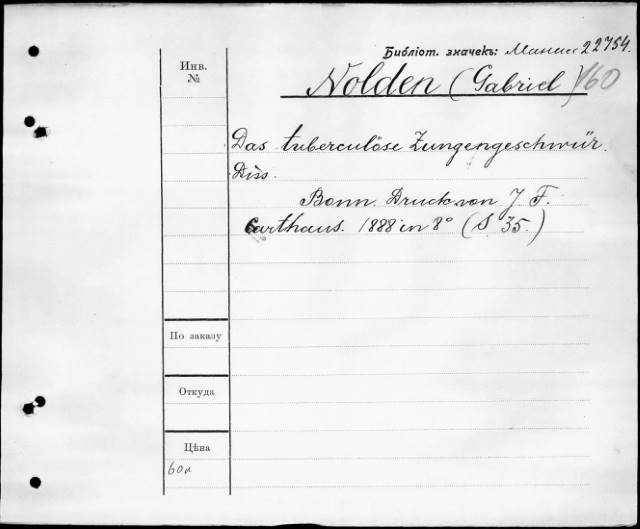 Библіот. значекъ: 22754.
Инв.
№
Nolden (Gabriel) 160
Das tuberculöse Zungengeschwür.
Diss.
Bonn. Druck von J. F.
Carthaus. 1888 in 8° (S. 35.)
По заказу
Откуда
Цѣна
60